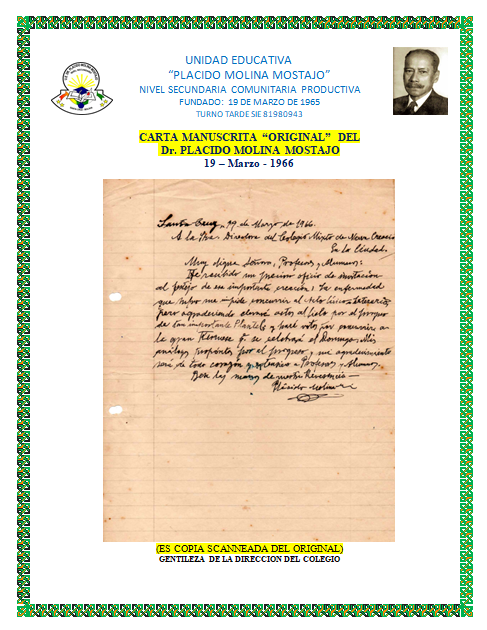 UNIDAD EDUCATIVA
“PLACIDO MOLINA MOSTAJO”
NIVEL SECUNDARIA COMUNITARIA PRODUCTIVA
FUNDADO: 19 DE MARZO DE 1965
TURNO TARDE SIE 81980943
CARTA MANUSCRITA “ORIGINAL” DEL
Dr. PLACIDO MOLINA MOSTAJO
19 – Marzo - 1966
Santa Cruz, 19 de Marzo de 1966.
A la Sra. Directora del Colegio Mixto de Nueva Creación
En la Ciudad.
Muy digna Señora, Profesores y Alumnos:
He recibido un precioso oficio de invitacion
al festejo de su importante creación; la enfermedad
que sufro me impide concurrir al Acto
pero agradeciendo votos al por el progreso
de tan importante Plantel y
la gran Kermese q. se celebrará el Domingo. Mis
por el progreso y mi agradecimiento
de todo corazón a Profesores y Alumnos.
Plácido Molina
(ES COPIA SCANNEADA DEL ORIGINAL)
GENTILEZA DE LA DIRECCION DEL COLEGIO